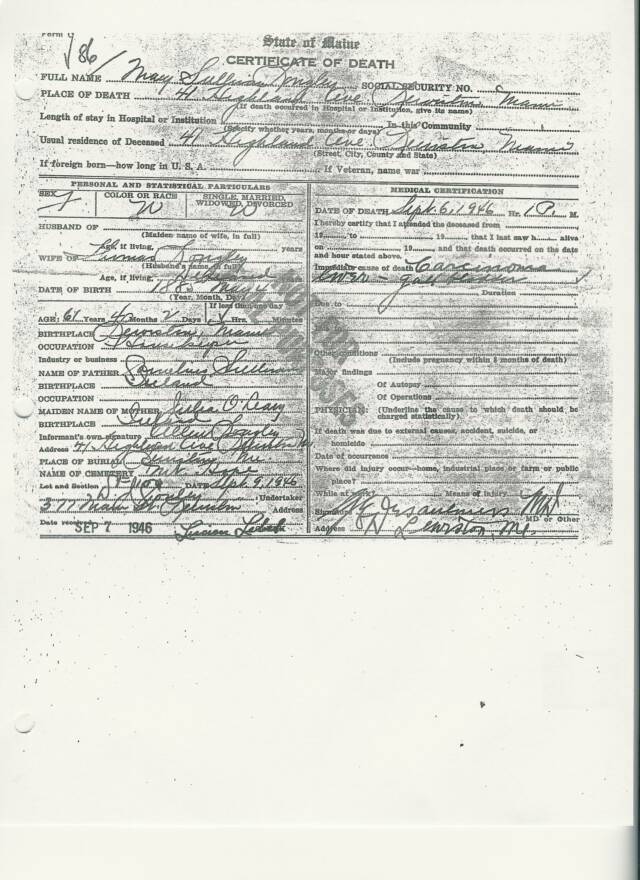 Form
86
State of Maine
CERTIFICATE OF DEATH
FULL NAME Mary Sullivan Longley SOCIAL SECURITY NO.
PLACE OF DEATH 41 Highland Ave Lewiston Maine
(If death occurred in Hospital or Institution, give its name)
Length of stay in Hospital or Institution In this Community
(Specify whether years, months or days)
Usual residence of Deceased 41 Highland Ave Lewiston Maine
(Street, City, County and State)
If foreign born—how long in U. S. A. If Veteran, name war
PERSONAL AND STATISTICAL PARTICULARS
SEX F COLOR OR RACE W SINGLE, MARRIED, WIDOWED, DIVORCED W
HUSBAND OF
(Maiden name of wife, in full)
Age, if living, years
WIFE OF Longley
(Husband's name, in full)
Age, if living,
DATE OF BIRTH 1885 May 4
(Year, Month, Day)
If less than one day
AGE: 61 Years 4 Months 2 Days Hrs. Minutes
BIRTHPLACE Lewiston, Maine
OCCUPATION Housekeeper
Industry or business
NAME OF FATHER Cornelius Sullivan
BIRTHPLACE Ireland
OCCUPATION
MAIDEN NAME OF MOTHER Julia O'Leary
BIRTHPLACE Ireland
Informant's own signature Longley
Address 41 Highland Ave Lewiston Me.
PLACE OF BURIAL Lewiston Me
NAME OF CEMETERY Mt. Hope
Lot and Section DATE Sept. 9, 1946
Undertaker
377 Main St. Lewiston Address
Date received SEP 7 1946
MEDICAL CERTIFICATION
DATE OF DEATH Sept. 6, 1946 Hr. 1 P. M.
I hereby certify that I attended the deceased from
19 to 19 that I last saw h alive
on 19 and that death occurred on the date
and hour stated above.
Immediate cause of death Carcinoma
liver - gall bladder
Duration
Due to
Other conditions
(Include pregnancy within 3 months of death)
Major findings
Of Autopsy
Of Operations
PHYSICIAN: (Underline the cause to which death should be
charged statistically).
If death was due to external causes, accident, suicide, or
homicide
Date of occurrence
Where did injury occur—home, industrial place or farm or public
place?
While at work? Means of Injury
Signature MD
MD or Other
Address Lewiston Me.